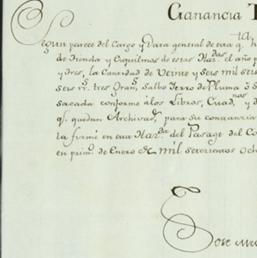 Ganancia T
Segun parece del Cargo y Data general de esta q.
de Tienda y Esquilmos de estas Haz.das el año p
y tres, la Cantidad de Veinte y seis mil sete
seis rr.s tres gran.s, Salbo Yerro de Pluma ó S
sacada conforme álos Libros, Cuad.nos
q. quedan Archivad.s para su constancia
la firmé en esta Haz.da del Pasage del Co
en prim.o de Enero de mil setecientos och
Jose